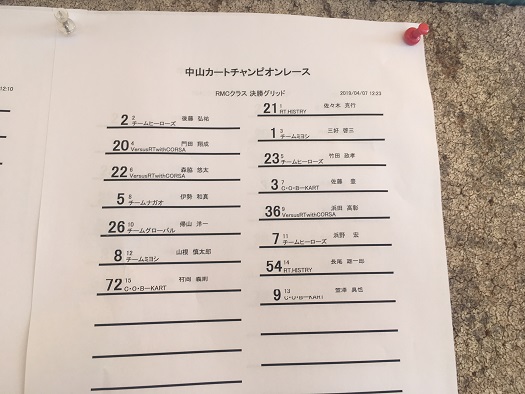 12:10
中山カートチャンピオンレース
RMCクラス 決勝グリッド
2019/04/07 12:23
2 2 後藤 弘祐
チームヒーローズ
20 4 門田 翔成
VersusRTwithCORSA
22 6 森脇 悠太
VersusRTwithCORSA
5 8 伊勢 和真
チームナガオ
26 10 帰山 洋一
チームグローバル
8 12 山根 慎太郎
チームミヨシ
72 15 村岡
C・O・B-KART
21 1 佐々木 克行
RT.HISTRY
1 3 三好 啓三
チームミヨシ
23 5 竹田 政孝
チームヒーローズ
3 7 佐藤
C・O・B-KART
36 9 浜田 高彰
VersusRTwithCORSA
7 11 浜野 宏
チームヒーローズ
54 14 長尾 雄一郎
RT.HISTRY
9 13 笠澤 真也
C・O・B-KART